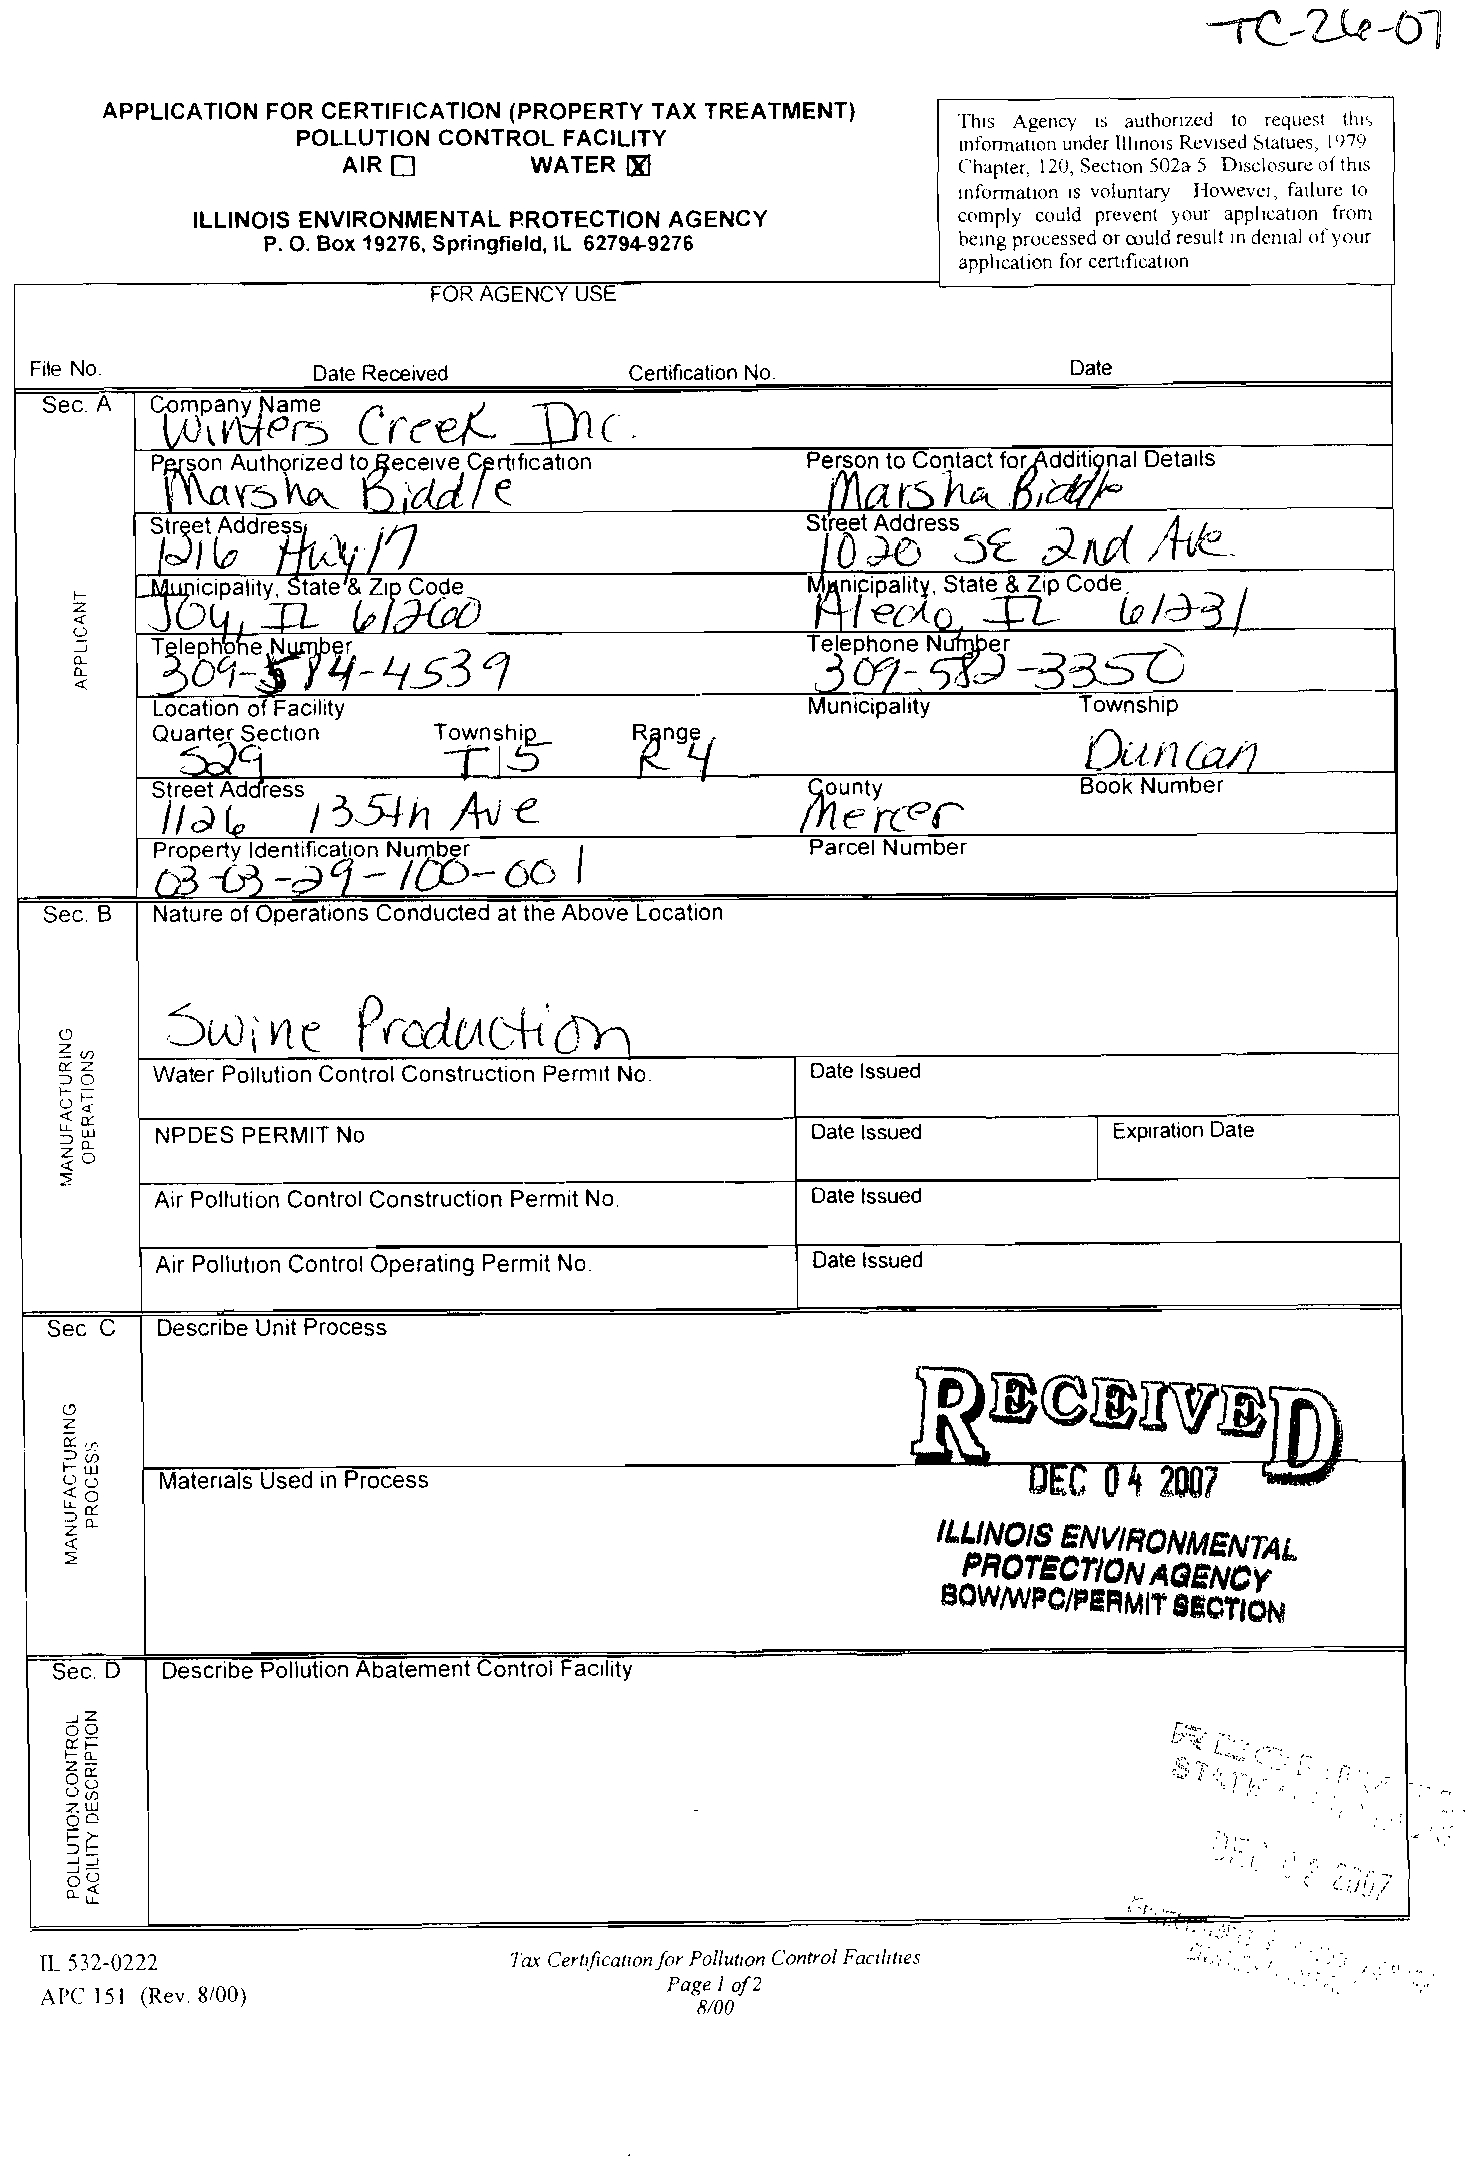 TC-26-07
APPLICATION FOR CERTIFICATION (PROPERTY TAX TREATMENT)
POLLUTION CONTROL FACILITY
AIR ☐ WATER ☒
ILLINOIS ENVIRONMENTAL PROTECTION AGENCY
P. O. Box 19276, Springfield, IL 62794-9276
This Agency is authorized to request this
information under Illinois Revised Statues, 1979
Chapter, 120, Section 502a-5 Disclosure of this
information is voluntary However, failure to
comply could prevent your application from
being processed or could result in denial of your
application for certification
FOR AGENCY USE
File No. Date Received Certification No. Date
Sec. A
APPLICANT
Company Name
Winters Creek Inc.
Person Authorized to Receive Certification Person to Contact for Additional Details
Marsha Biddle Marsha Biddle
Street Address Street Address
1216 Hwy 17 1020 SE 2nd Ave.
Municipality, State & Zip Code Municipality, State & Zip Code
Joy, IL 61260 Aledo, IL 61231
Telephone Number Telephone Number
309-584-4539 309-582-3350
Location of Facility Municipality Township
Quarter Section Township Range
S29 T15 R4 Duncan
Street Address County Book Number
1126 135th Ave Mercer
Property Identification Number Parcel Number
03-03-29-100-001
Sec. B
MANUFACTURING
OPERATIONS
Nature of Operations Conducted at the Above Location
Swine Production
Water Pollution Control Construction Permit No. Date Issued
NPDES PERMIT No Date Issued Expiration Date
Air Pollution Control Construction Permit No. Date Issued
Air Pollution Control Operating Permit No. Date Issued
Sec C
MANUFACTURING
PROCESS
Describe Unit Process
RECEIVED
Materials Used in Process
DEC 04 2007
ILLINOIS ENVIRONMENTAL
PROTECTION AGENCY
BOW/WPC/PERMIT SECTION
Sec. D
POLLUTION CONTROL
FACILITY DESCRIPTION
Describe Pollution Abatement Control Facility
DEC 2007
IL 532-0222
APC 151 (Rev. 8/00)
Tax Certification for Pollution Control Facilities
Page 1 of 2
8/00